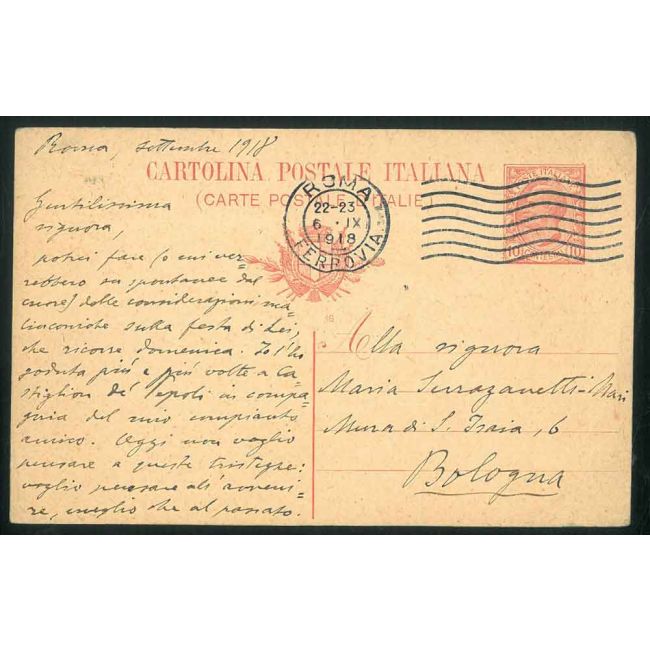 Roma, settembre 1918
CARTOLINA POSTALE ITALIANA
(CARTE POSTALE D'ITALIE)
ROMA
22-23
6 · IX
1918
FERROVIA
POSTE ITALIANE
10 10
Gentilissima
signora,
potrei fare (o mi ver-
rebbero su spontanee dal
cuore) delle considerazioni ma-
linconiche sulla festa di Lei,
che ricorre domenica. Io l'ho
goduta più e più volte a Ca-
stiglion de' Pepoli in compa-
gnia del mio compianto
amico. Oggi non voglio
pensare a queste tristezze:
voglio pensare all'avveni-
re, meglio che al passato.
18
Alla signora
Maria Serrazanetti-
Mura di S. Isaia, 6
Bologna